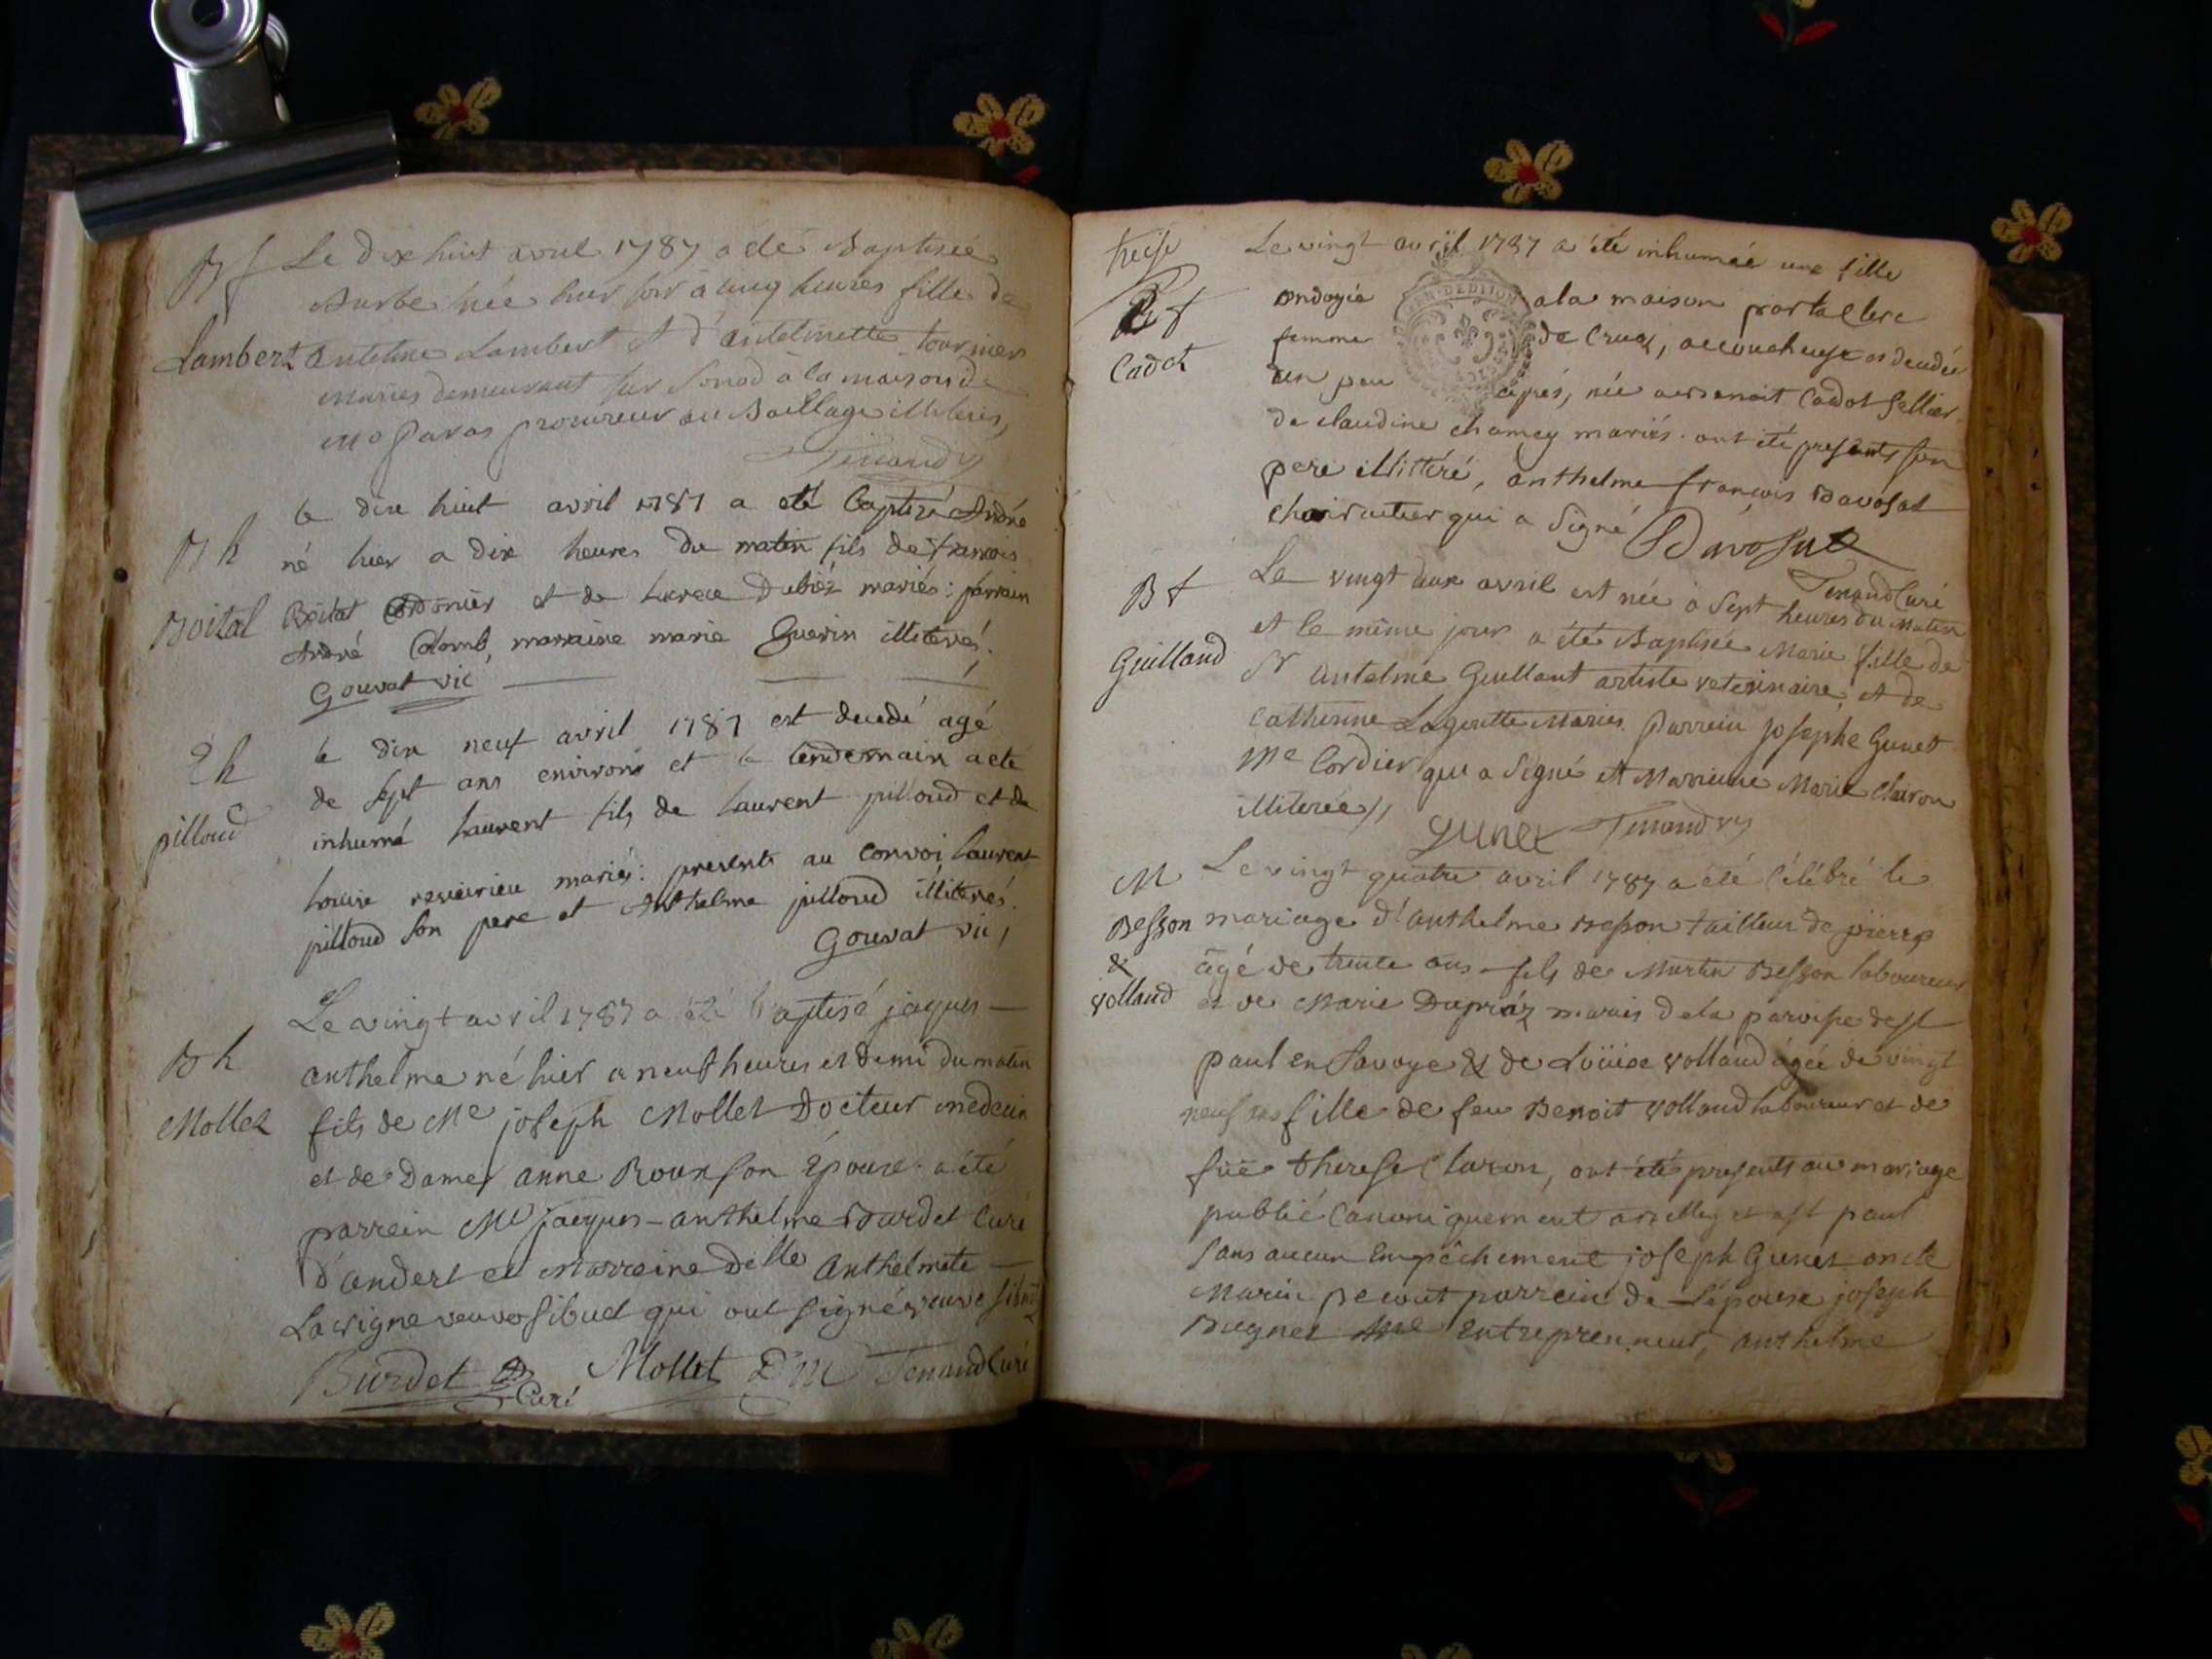 Bf
Lambert
Le Dix huit avril 1787 a été Baptisée
née hier soir à cinq heures fille de
antelme Lambert et d'antelmette tournier
mariés demeurant sur à la maison de
procureur au Baillage illiterés,
Tenand
Bh
Boital
le dix huit avril 1787 a eté baptizé André
né hier a dix heures du matin fils de francois
Boitat Cordonier et de Lucrece Dubiéz mariés: parrain
André Colomb, marraine marie Guerin illiterés.
Gouvat vic
Eh
pilloud
le dix neuf avril 1787 est decedé agé
de sept ans environs et le lendemain a eté
inhumé laurent fils de laurent pilloud et de
louise mariés: presents au convoi laurent
pilloud son pere et Anthelme pilloud illiterés.
Gouvat vic,
Bh
Mollet
Le vingt avril 1787 a été baptisé jaques
anthelme né hier a neuf heures et demi du matin
fils de Me joseph Mollet Docteur medecin
et de Dame anne Roux son Épouse. a été
parrein Me jacques-anthelme Burdet Curé
d'andert et Marreine Delle Anthelmete
Lavigne veuve sibuet qui ont signé
Burdet Curé Mollet D M Tenand Curé
treise
Ef
Cadot
Le vingt avril 1787 a été inhumée une fille
ondoyée a la maison par la Clerc
femme de Cruaz, accoucheuse et decedée
un peu après, née de benoit Cadot sellier
de claudine chamey mariés. ont été presents son
pere illittéré, anthelme françois Davosat
chaircutier qui a signé Davosat
Tenand Curé
Bf
Guilland
Le vingt deux avril est née à sept heures du matin
et le même jour a été Baptisée Marie fille de
Sr antelme Guillant artiste veterinaire, et de
Catherine Lagoutte Mariés. Parrein josephe Gunet
Me Cordier qui a signé et Marreine Marie Claron
illiterée //
Gunet Tenand
M
Besson
&
Volland
Le vingt quatre avril 1787 a été Célébré le
mariage d'anthelme Besson tailleur de pierre
âgé de trente ans fils de Martin Besson laboureur
et de Marie Dupráz mariés de la paroisse de st
paul en Savoye & de Loüise volland agée de vingt
neuf ans fille de feu Benoit volland laboureur et de
füe therese Claron, ont été presents au mariage
publié Canoniquement a belley et a st paul
sans aucun Empêchement joseph Gunet oncle
parrein de L'épouse joseph
Me Entreprenneur, anthelme